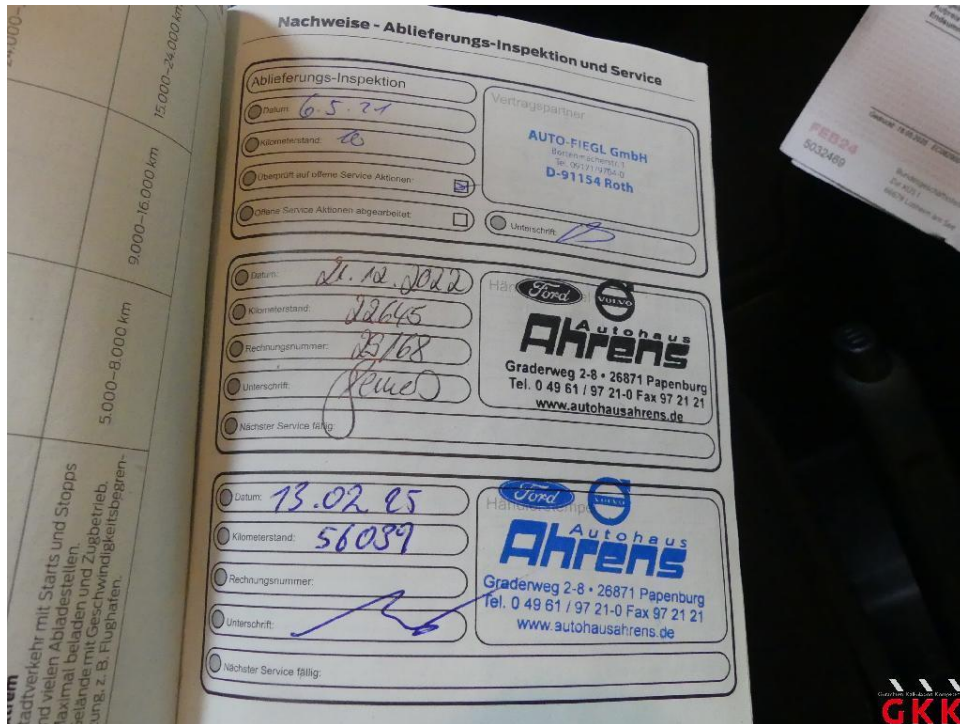 24.000-
15.000–24.000 km
9.000–16.000 km
5.000–8.000 km
tadtverkehr mit Starts und Stopps
nd vielen Abladestellen.
aximal beladen und Zugbetrieb.
elände mit Geschwindigkeitsbegren-
ung, z. B. Flughafen.
Nachweise - Ablieferungs-Inspektion und Service
Ablieferungs-Inspektion
Datum: 6.5.21
Kilometerstand: 10
Überprüft auf offene Service Aktionen:
Offene Service Aktionen abgearbeitet:
Vertragspartner
AUTO-FIEGL GmbH
D-91154 Roth
Unterschrift:
Datum: 21.12.2022
Kilometerstand: 22645
Rechnungsnummer: 23168
Unterschrift:
Nächster Service fällig:
Ford
VOLVO
Autohaus
Ahrens
Graderweg 2-8 • 26871 Papenburg
Tel. 0 49 61 / 97 21-0 Fax 97 21 21
www.autohausahrens.de
Datum: 13.02 25
Kilometerstand: 56039
Rechnungsnummer:
Unterschrift:
Nächster Service fällig:
Händlerstempel
Ford
VOLVO
Autohaus
Ahrens
Graderweg 2-8 • 26871 Papenburg
Tel. 0 49 61 / 97 21-0 Fax 97 21 21
www.autohausahrens.de
FEB24
5032469
GKK